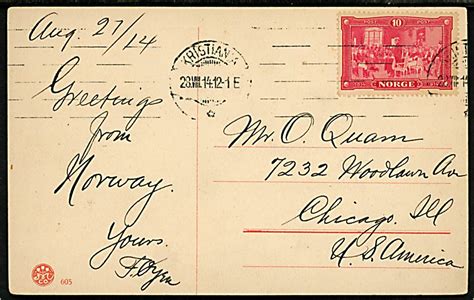 Aug. 27/14
Greetings
from
Norway.
Yours.
KRISTIANIA
28.VIII.14.12-1 E
10
NORGE
Mr. O. Quam
7232 Woodlawn Ave
Chicago, Ill
U.S. America
605